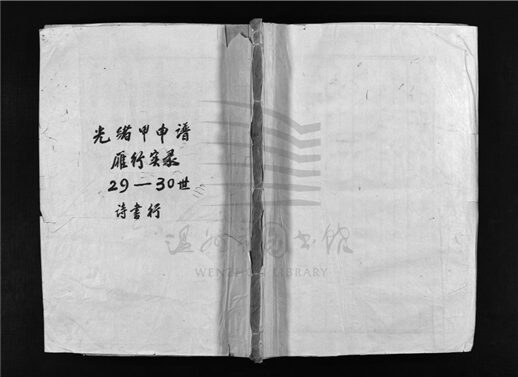 光绪甲申谱
雁行实录
29—30世
诗书行
温州市图书馆
WENZHOU LIBRARY